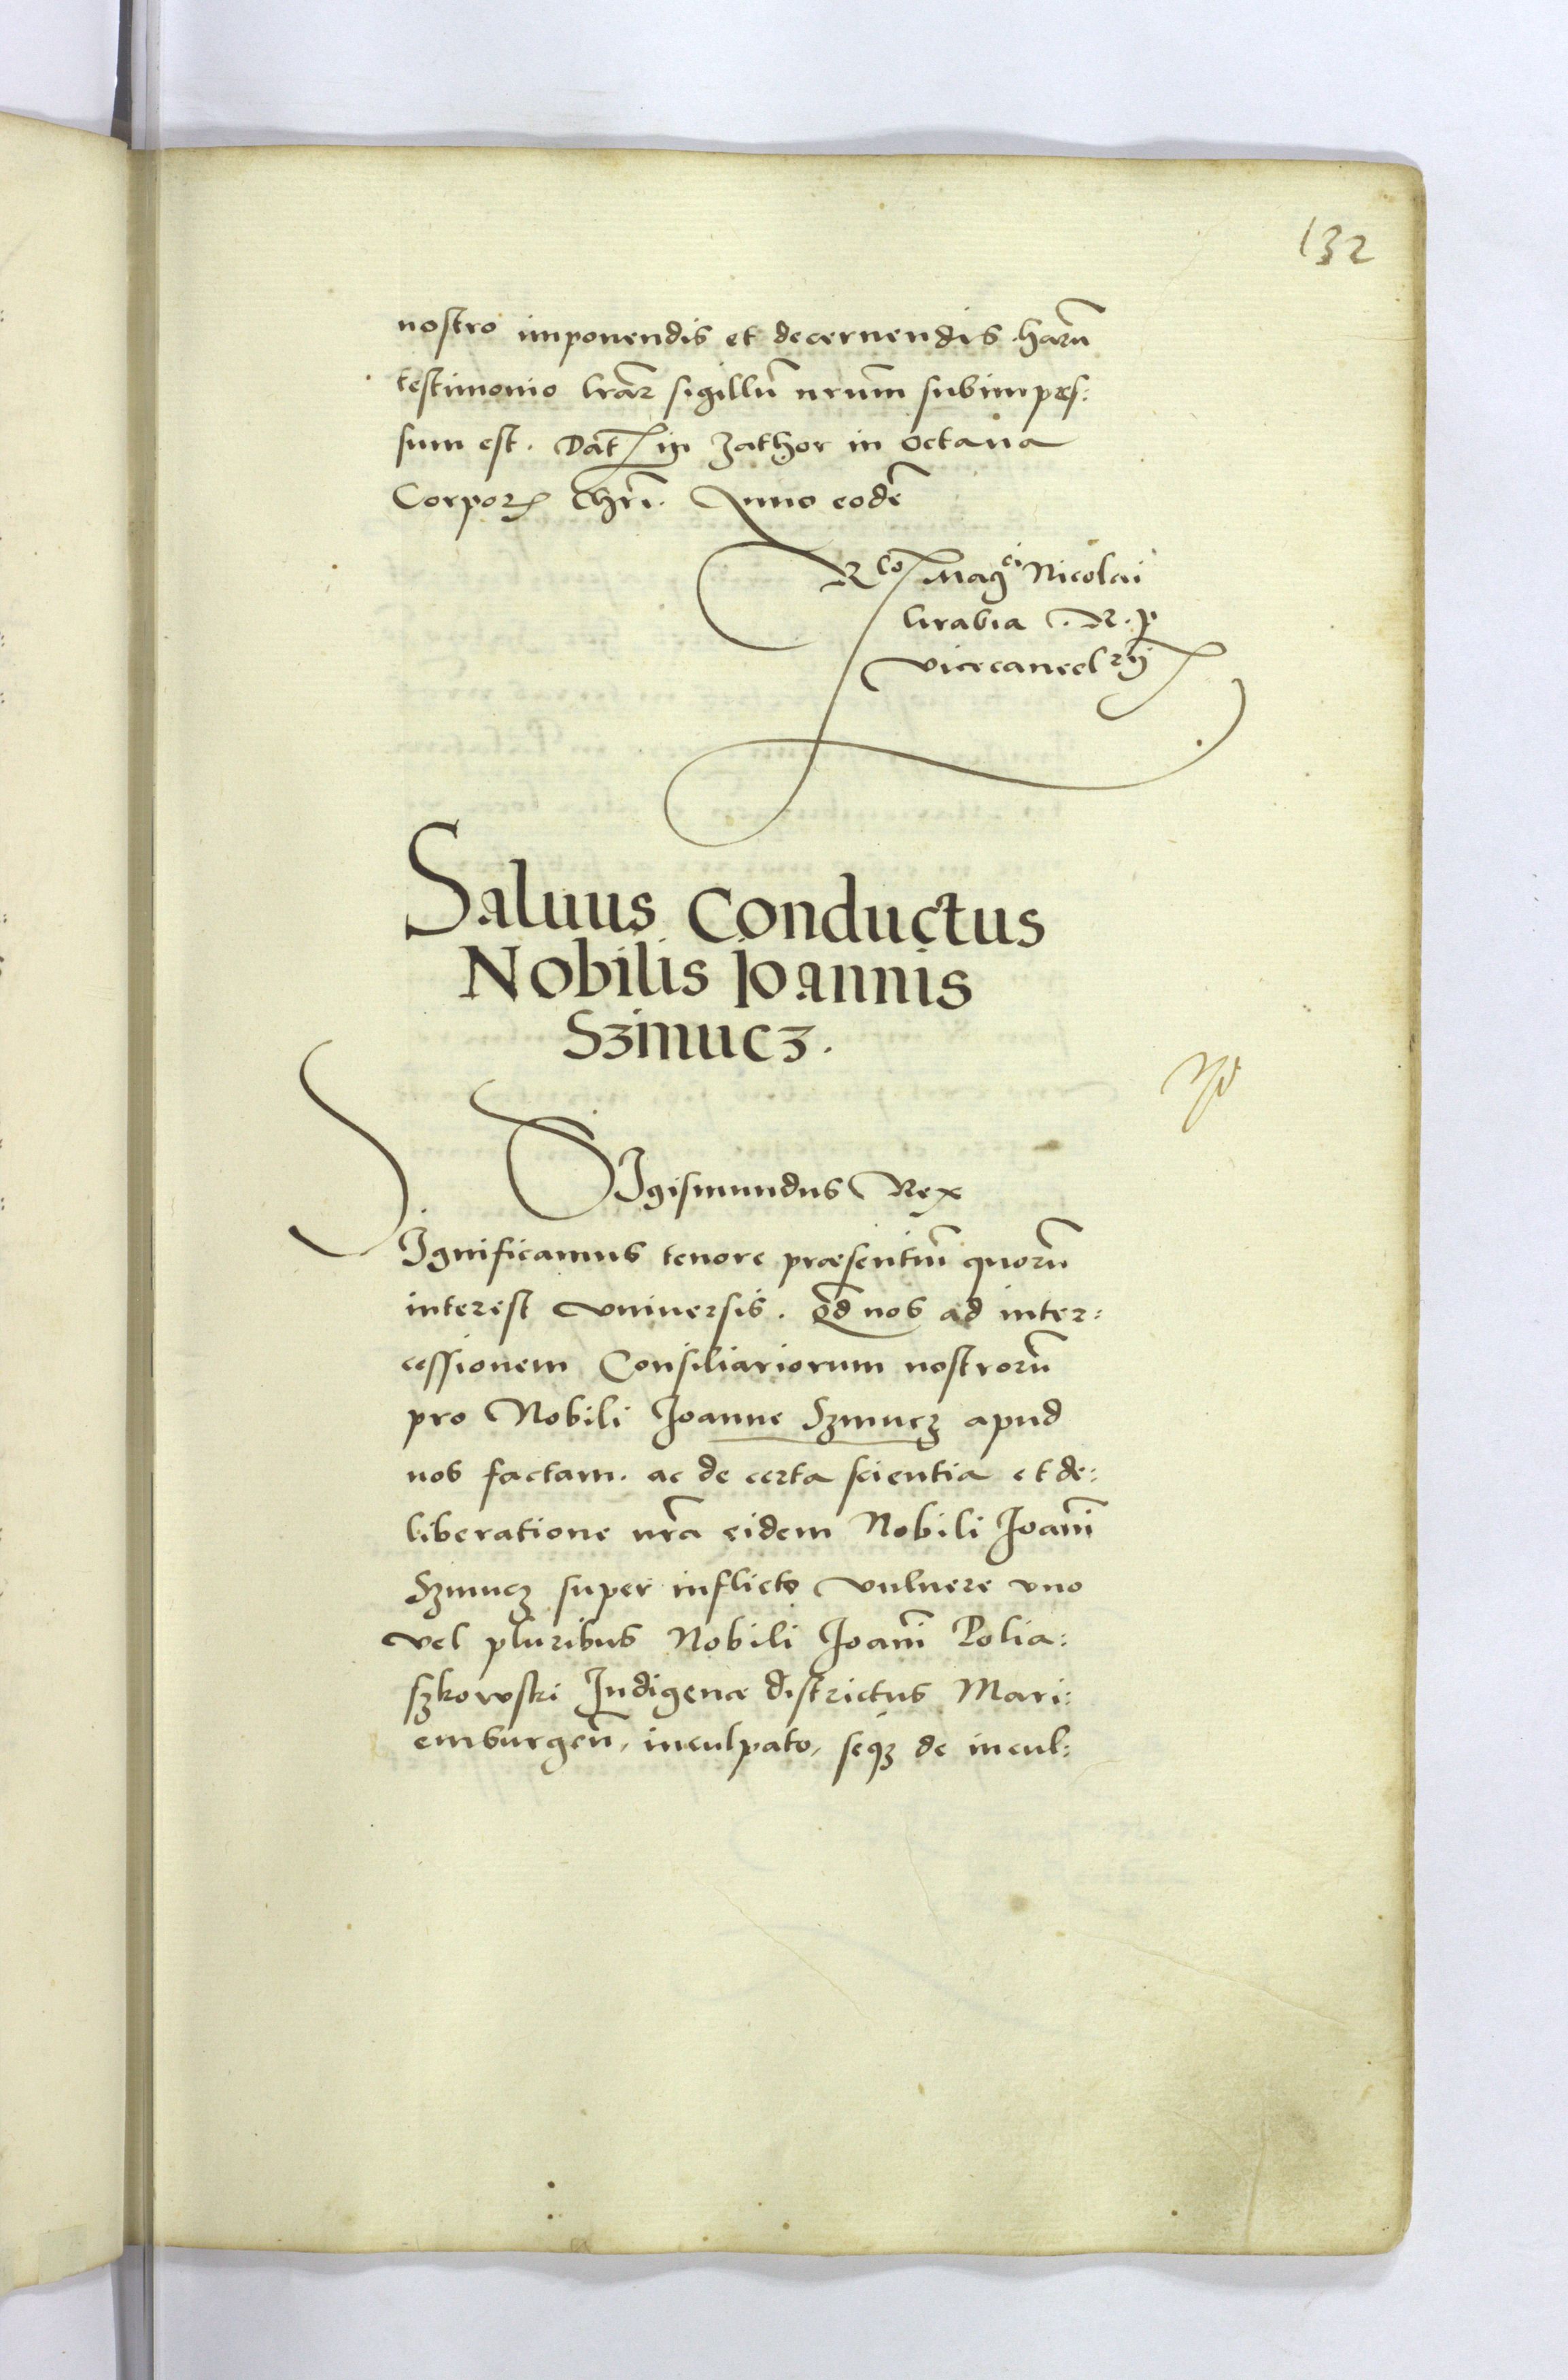 132
nostro imponendis et decernendis. harū
testimonio lrar̃ sigillū nrum̄ subimpres:
sum est. Dat̃ in Zathor in octaua
Corporꝭ Chrī. Anno eodē
Rᶜᵒ Magᶜⁱ Nicolai
Grabia .R.P
vicecancelʳⁱʲ
Saluus Conductus
Nobilis Ioannis
Szmucz.
SIgismundus Rex
SIgnificamus tenore præsentiū quorū
interest vniuersis. Qd̄ nos ad inter:
cessionem Consiliariorum nostrorū
pro Nobili Joanne Szmucz apud
nos factam. ac de certa scientia et de:
liberatione nr̃a eidem Nobili Joanī
Szmucz super inflicto vulnere vno
vel pluribus Nobili Joanī Polia:
szkowski Indigenæ districtus Mari:
emburgeñ, inculpato, seqȝ de incul: